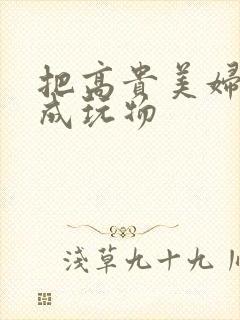 把高贵美婦
成玩物
淺草九十九